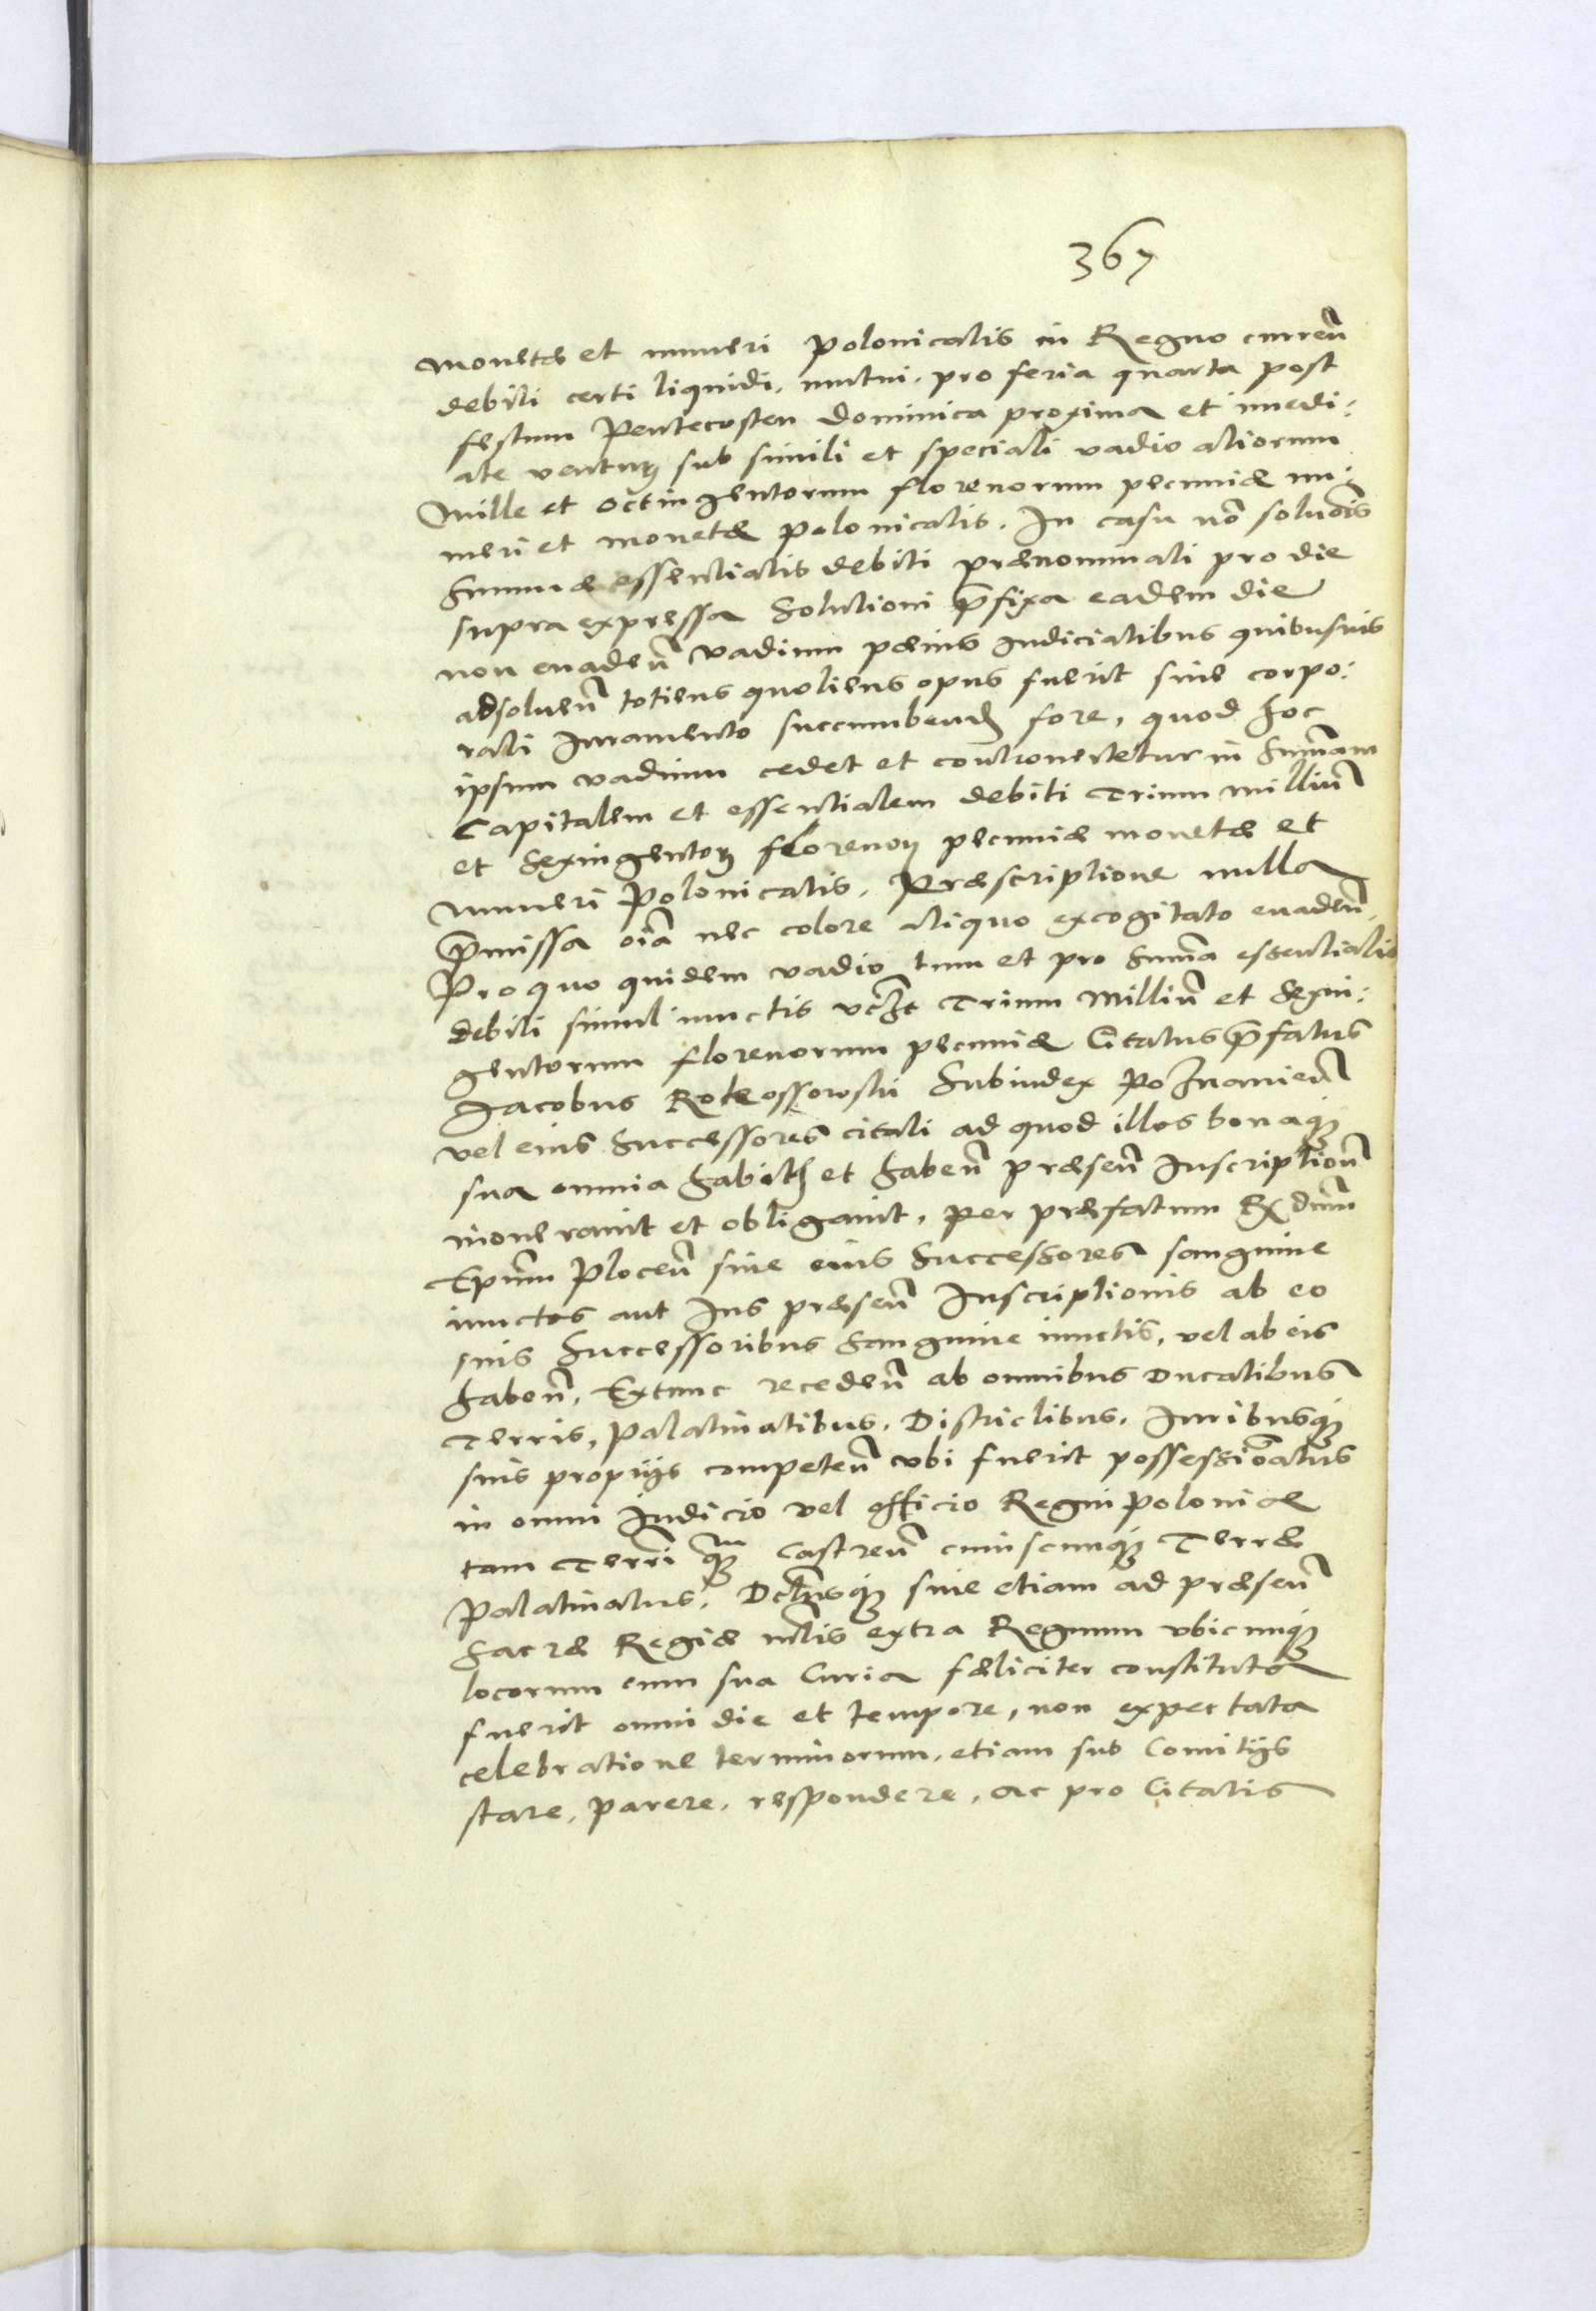 367
monetæ et numeri polonicalis in Regno curren̄
debiti certi liquidi, mutui, pro feria quarta post
festum Pentecosten dominica proxima et imedi:
ate ventuꝝ sub simili et speciali vadio aliorum
Mille et octingentorum florenorum pecuniæ nu:
meri et monetæ polonicalis. In casu nō soluc̄ois
Summæ essentialis debiti prænominati pro die
supra expressa Solutioni p̄fixa eadem die
non euaden̄ vadium pænis Iudicialibus quibusuis
adsoluen̄ totiens quotiens opus fuerit sine corpo:
rali Iuramento succumbend fore, quod hoc
ipsum vadium cedet et controuertetur in Sum̄am
Capitalem et essentialem debiti Trium milliū
et Sexingentoꝝ florenoꝝ pecuniæ monetæ et
numeri Polonicalis. Præscriptione nulla
p̄missa oīa nec colore aliquo excogitato euaden̄.
Pro quo quidem vadio tum et pro Sum̄a essentialis
debiti simul iunctis vcz̄t Trium Milliū et Sexin:
gentorum florenorum pecuniæ Citatus p̄fatus
Jacobus Rokossowski Subiudex Poznanien̄
vel eius Successores citati ad quod illos bonaqꝫ
sua omnia habita et haben̄ præsen̄ Inscription̄
inoneranit et obligauit, per præfatum Rx̄ dn̄m
Ep̄um Plocen̄ siue eius Successores sanguine
iunctos aut Ius præsen̄ Inscriptionis ab eo
suis Successoribus Sanguine iunctis, vel ab eis
haben̄, Extunc receden̄ ab omnibus Ducatibus
Terris, Palatinatibus, Districtibus, Iuribusqꝫ
suis proprijs competen̄ vbi fuerit possessiōatus
in omni Iudicio vel officio Regni Poloniæ
tam Terri q̄ꝫ Castren̄ cuiuscunqꝫ Terræ
Palatinatus, Dc̄tusqꝫ siue etiam ad præsen̄
Sacræ Regiæ mt̄is extra Regnum vbicunqꝫ
locorum cum sua Curia fæliciter constituta
fuerit omni die et tempore, non expectata
celebratione terminorum, etiam sub Comitijs
stare, parere, respondere, ac pro Citatis